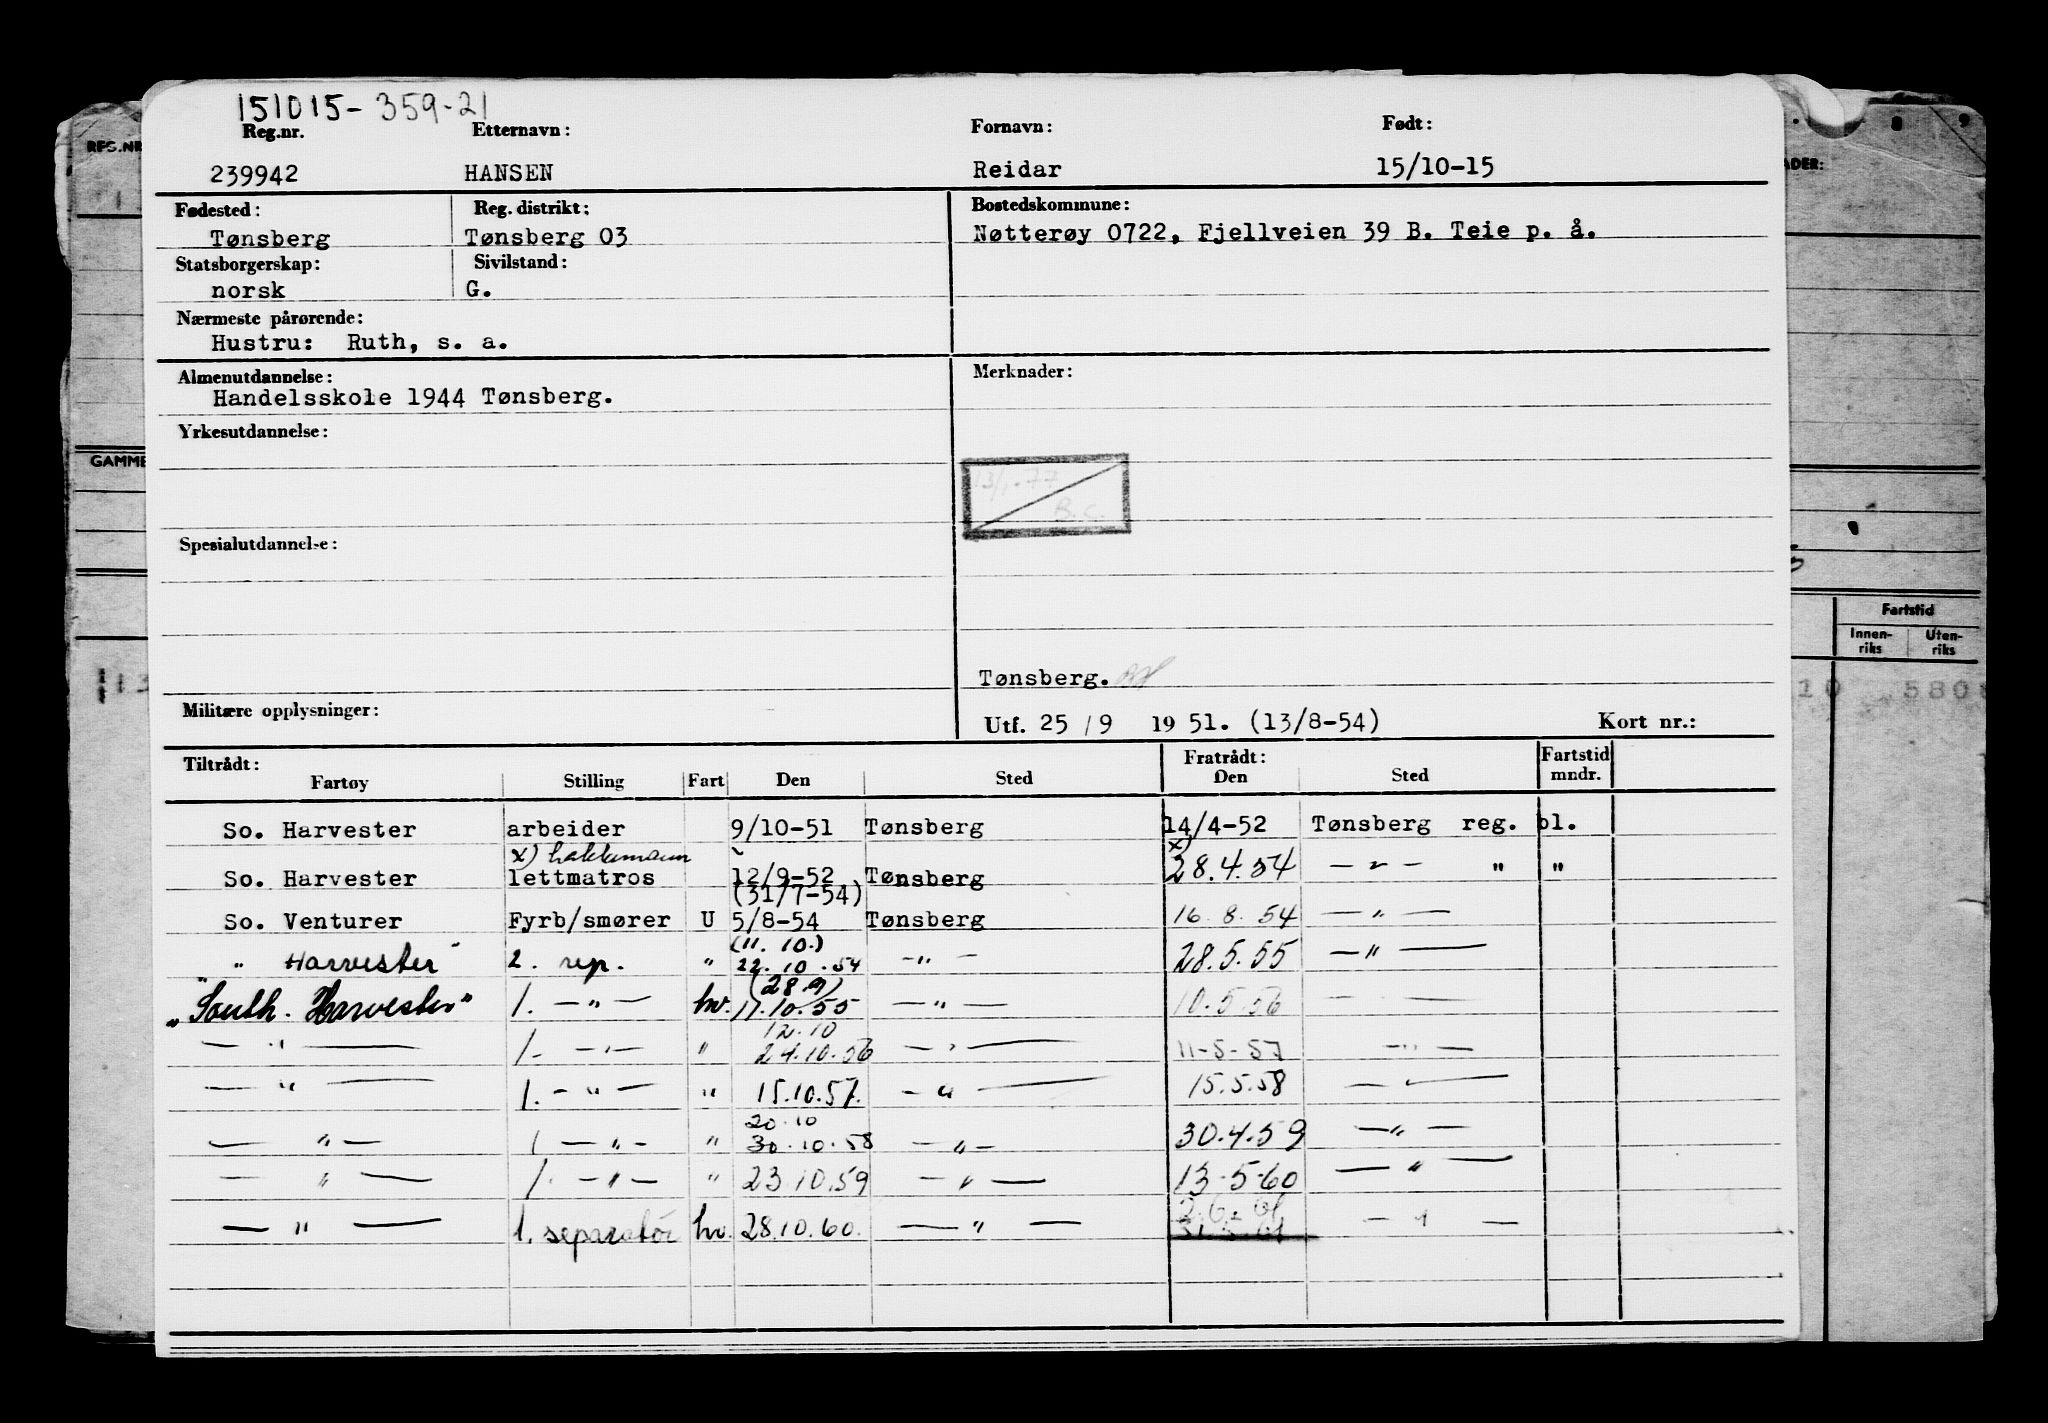 151015-359-21
Reg.nr. Etternavn: Fornavn: Født:
239942 HANSEN Reidar 15/10-15
Fødested: Reg. distrikt: Bostedskommune:
Tønsberg Tønsberg 03 Nøtterøy 0722, Fjellveien 39 B. Teie p. å.
Statsborgerskap: Sivilstand:
norsk G.
Nærmeste pårørende:
Hustru: Ruth, s. a.
Almenutdannelse: Merknader:
Handelsskole 1944 Tønsberg.
Yrkesutdannelse:
13/1-77
B.C.
Spesialutdannelse:
Tønsberg.
Militære opplysninger: Utf. 25/9 1951. (13/8-54) Kort nr.:
Tiltrådt: Fratrådt: Fartstid
Fartøy Stilling Fart Den Sted Den Sted mndr.
So. Harvester arbeider 9/10-51 Tønsberg 14/4-52 Tønsberg reg. bl.
x) hakkemann x)
So. Harvester lettmatros 12/9-52 Tønsberg 28.4.54 — " — " "
(31/7-54)
So. Venturer Fyrb/smører U 5/8-54 Tønsberg 16.8.54 — " —
(11.10.)
" Harvester 2. rep. " 22.10.54 — " — 28.5.55 — " —
(28.9)
"South. Harvester" 1. — " — hv. 11.10.55 — " — 10.5.56 — —
12.10
— " — 1. — " — " 24.10.56 — " — 11-5-57 — " —
— " — 1. — " — " 15.10.57. — " — 15.5.58 — " —
20.10
— " — 1 — " — " 30.10.58 — " — 30.4.59 — " —
— " — 1. — " — " 23.10.59 — " — 13-5-60 — " —
2.6.61
— " — 1. separatør hv. 28.10.60. — " — 31.5.61 — " —
REG.NR
GAMME
8 9
ADER:
Fartstid
Innen-
riks
Uten-
riks
13
10 580